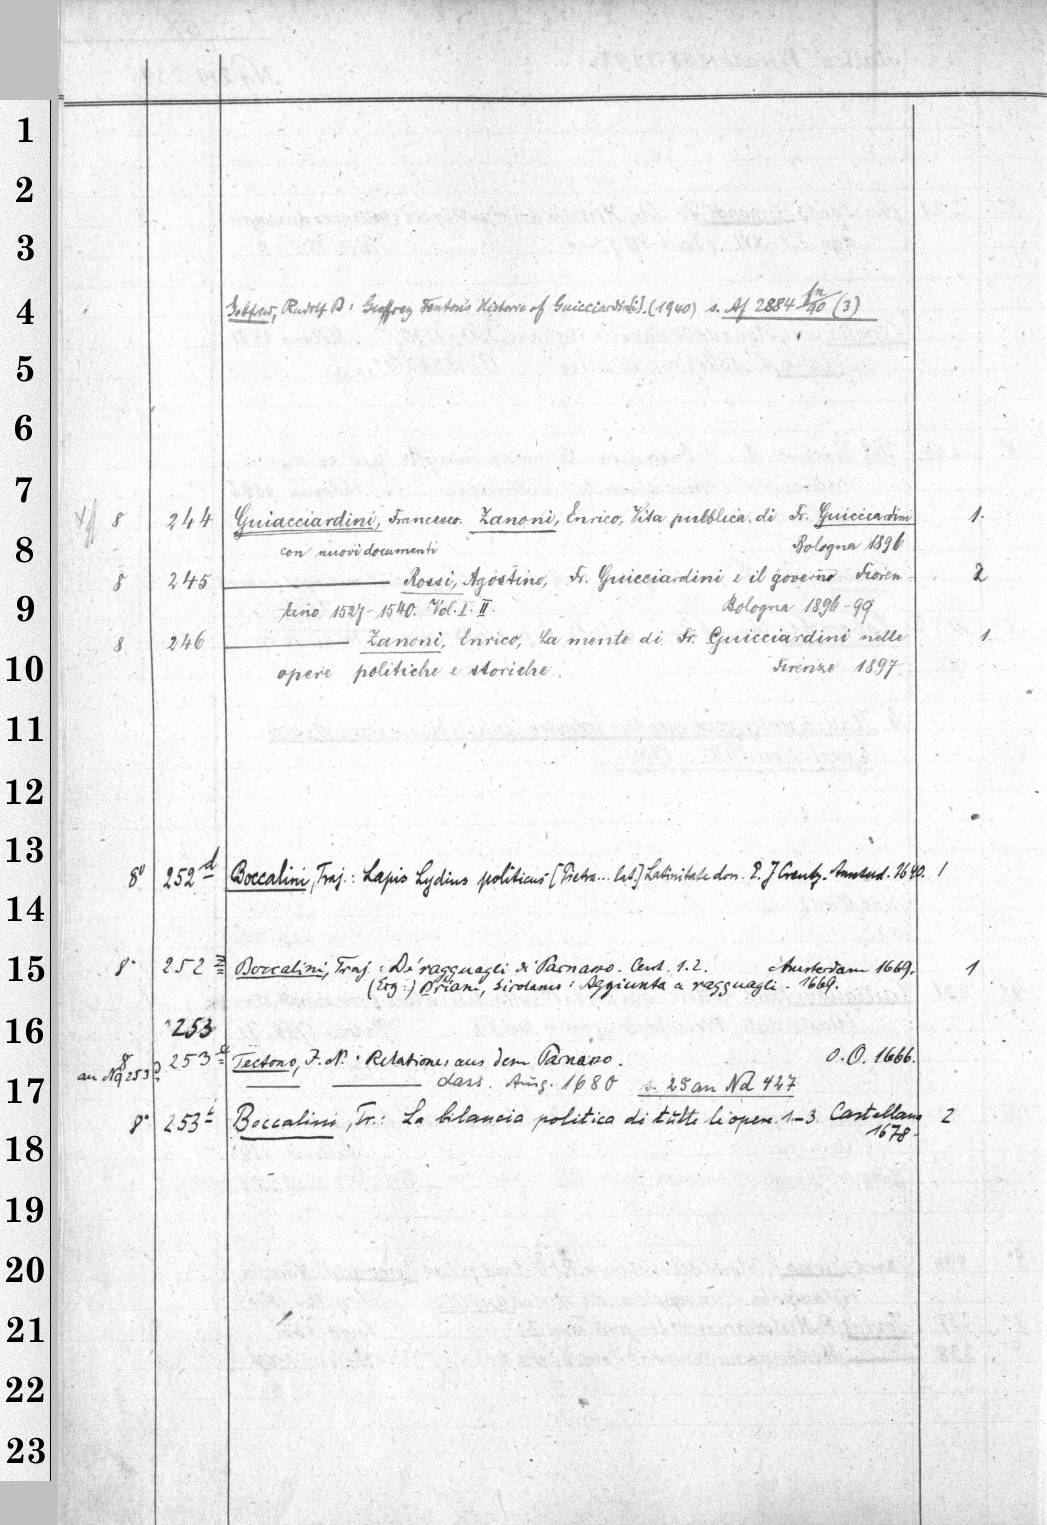 1
2
3
4 Gottfried, Rudolf B: Geoffrey Fenton's Historie of Guicciardin[i]. (1940) s. Af 2884 fn/90 (3)
5
6
7
8 244 Guiacciardini, Francesco. Zanoni, Enrico, Vita pubblica di Fr. Guicciardini 1.
8 con nuovi documenti Bologna 1896
8 245 Rossi, Agostino, Fr. Guicciardini e il governo Fioren- 2
9 tino 1527-1540. Vol. I. II. Bologna 1896-99
8 246 Zanoni, Enrico, La mente di Fr. Guicciardini nelle 1.
10 opere politiche e storiche. Firenze 1897
11
12
13
8º 252 d Boccalini, Traj.: Lapis Lydius politicus [Pietra... lat.] Latinitate don. E. J. Creutz. Amsterd. 1640. 1
14
15 8º 252 Boccalini, Traj.: De' ragguagli di Parnasso. Cent. 1. 2. Amsterdam 1669. 1
(Erg:) Briani, Girolamo: Aggiunta a ragguagli. 1669.
16 253
8 253 a Tectono, J. N.: Relationes aus dem Parnasso. o. O. 1666.
17 an Nq 253? dass. Aug. 1680 s. 25 an Nd 427
8º 253 b Boccalini, Tr.: La bilancia politica di tutte le opere. 1-3. Castellana 2
18 1678.
19
20
21
22
23